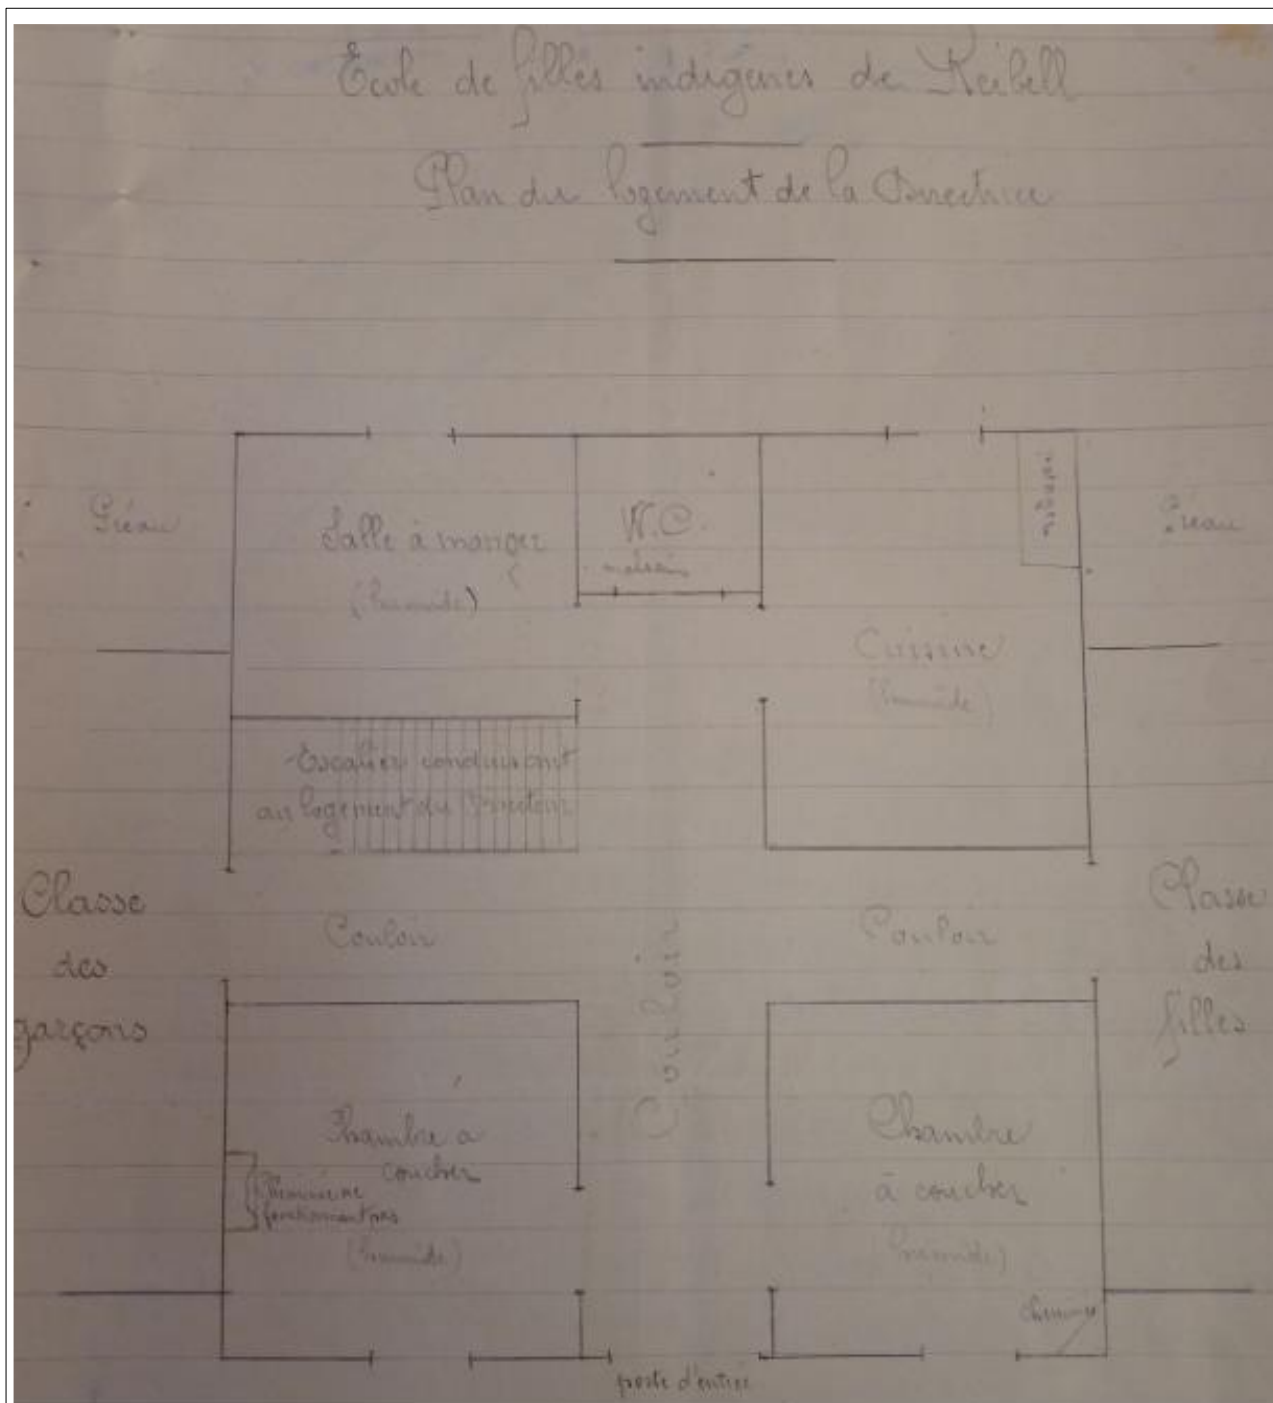 École de filles indigènes de Keibell
Plan du logement de la Directrice
Préau
Salle à manger
(humide)
W.C.
malsain
Cuisine
(humide)
Préau
Escalier conduisant
au logement du Directeur
Classe
des
garçons
Couloir
Couloir
Couloir
Classe
des
filles
Chambre à
coucher
Cheminée ne
fonctionnant pas
(humide)
Chambre
à coucher
(humide)
cheminée
porte d'entrée